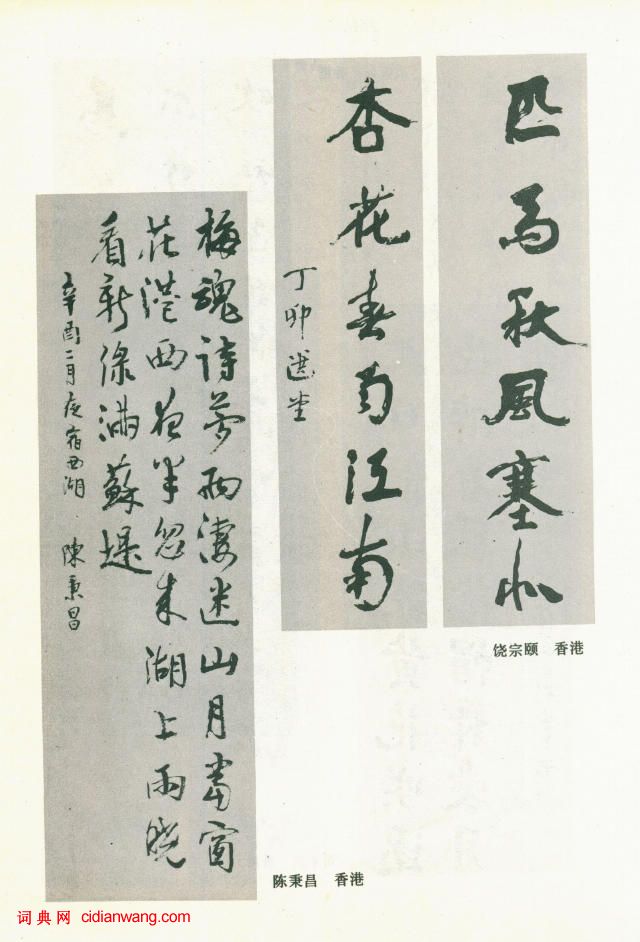 匹馬秋風塞北
杏花春雨江南
丁卯選堂
饶宗颐 香港
梅魂詩夢兩淒迷山月當窗
花港西夜半忽來湖上雨曉
看新綠滿蘇堤
辛酉二月夜宿西湖 陳秉昌
陈秉昌 香港
词典网 cidianwang.com